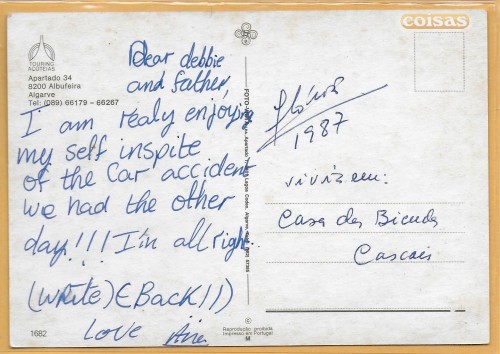 coisas
TOURING
AÇOTEIAS
Apartado 34
8200 Albufeira
Algarve
Tel: (089) 66179 – 66267
Dear debbie
and father,
I am realy enjoying
my self inspite
of the Car accident
we had the other
day!!! I'm all right..
(write) (Back!!)
Love
1682
FOTO
Apartado
Lagos
Algarve
Reprodução proibida
Impresso em Portugal
M
1987
vivi em:
Casa das Bicudas
Cascais